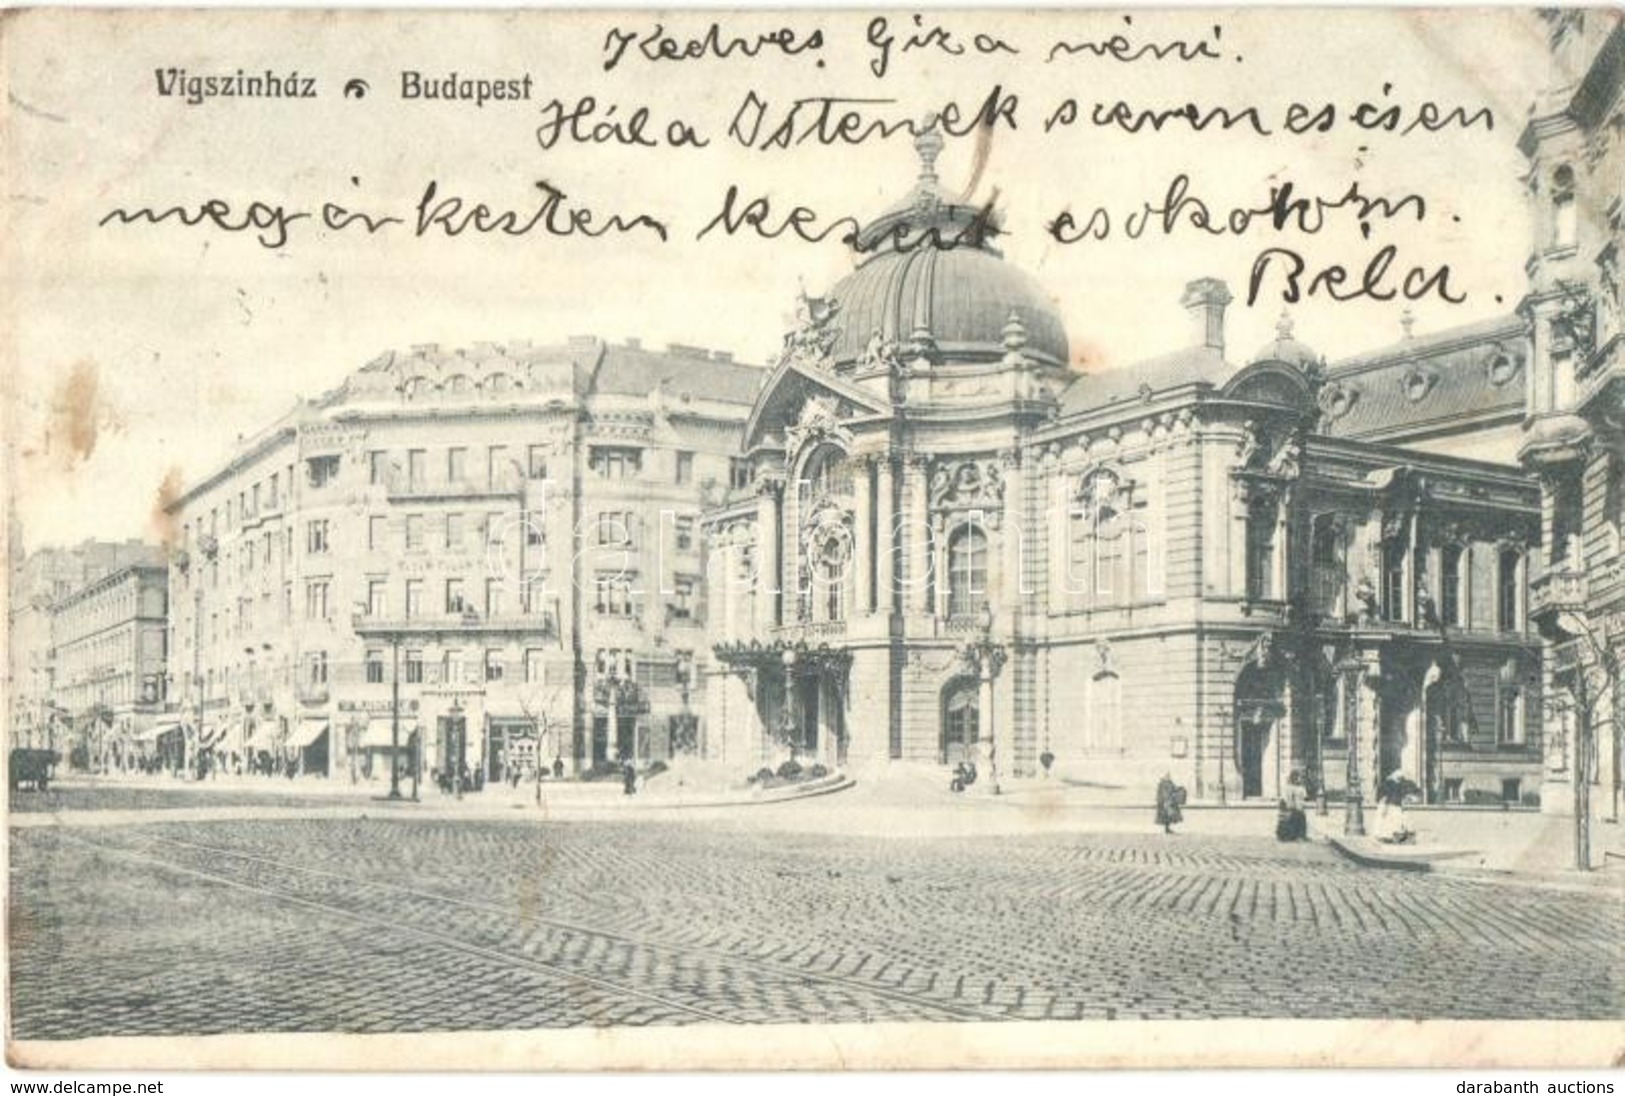 Kedves Giza néni.
Vigszinház Budapest
Hála Istenek szerencsésen
megérkestem kezeit csokolom.
Béla.
darabanth
www.delcampe.net
darabanth auctions